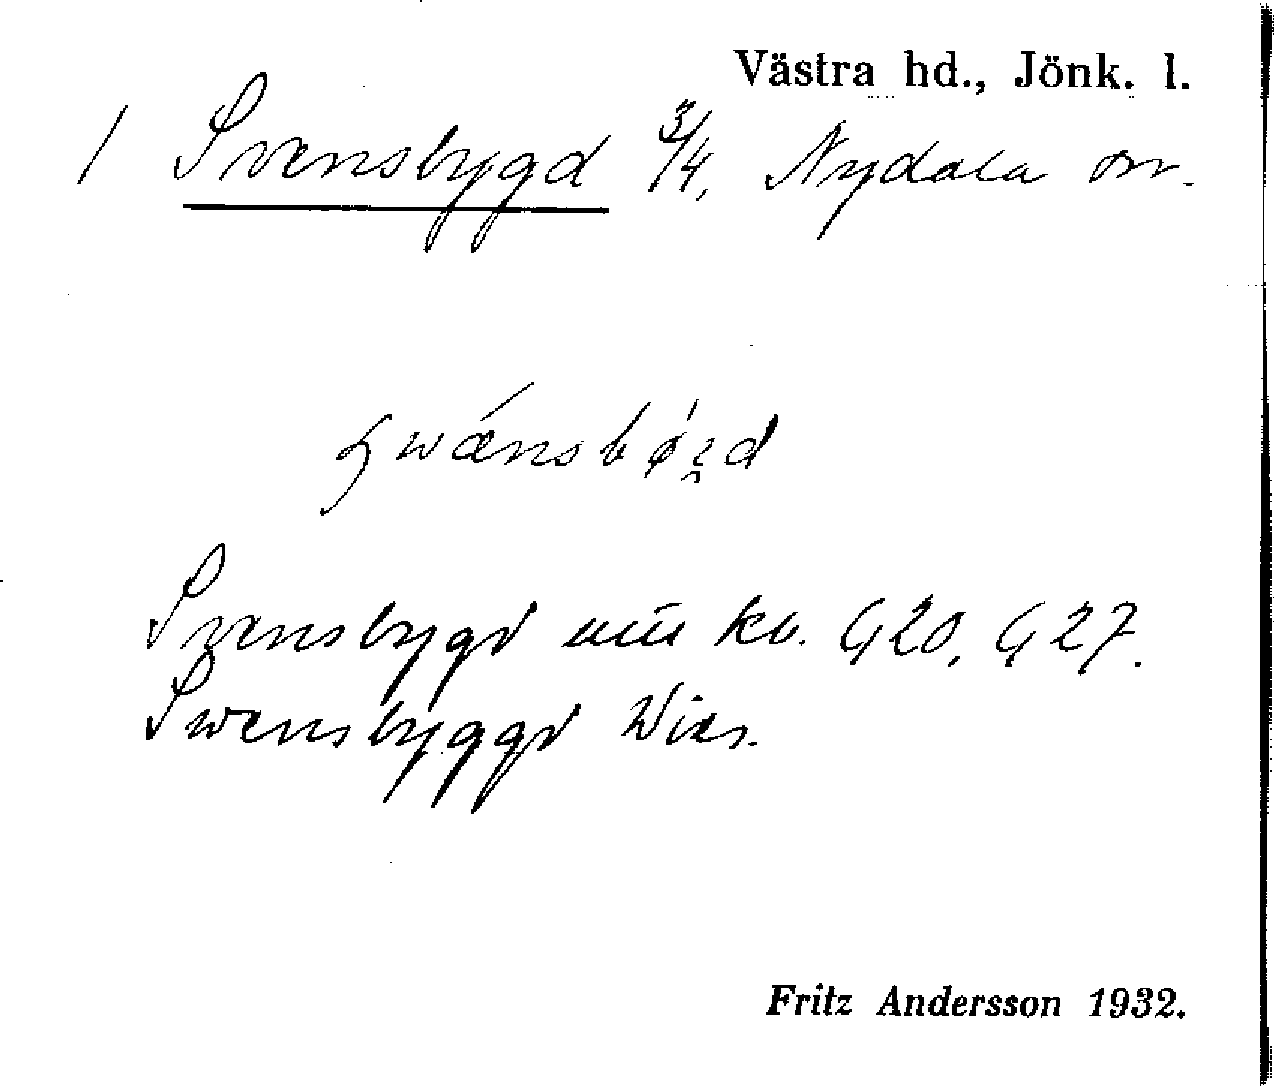 Västra hd., Jönk. l.
/ Svensbygd 3/4, Nydala sn.
Svensbygd kv. G20, G27.
Swensbyggd Wies.
Fritz Andersson 1932.